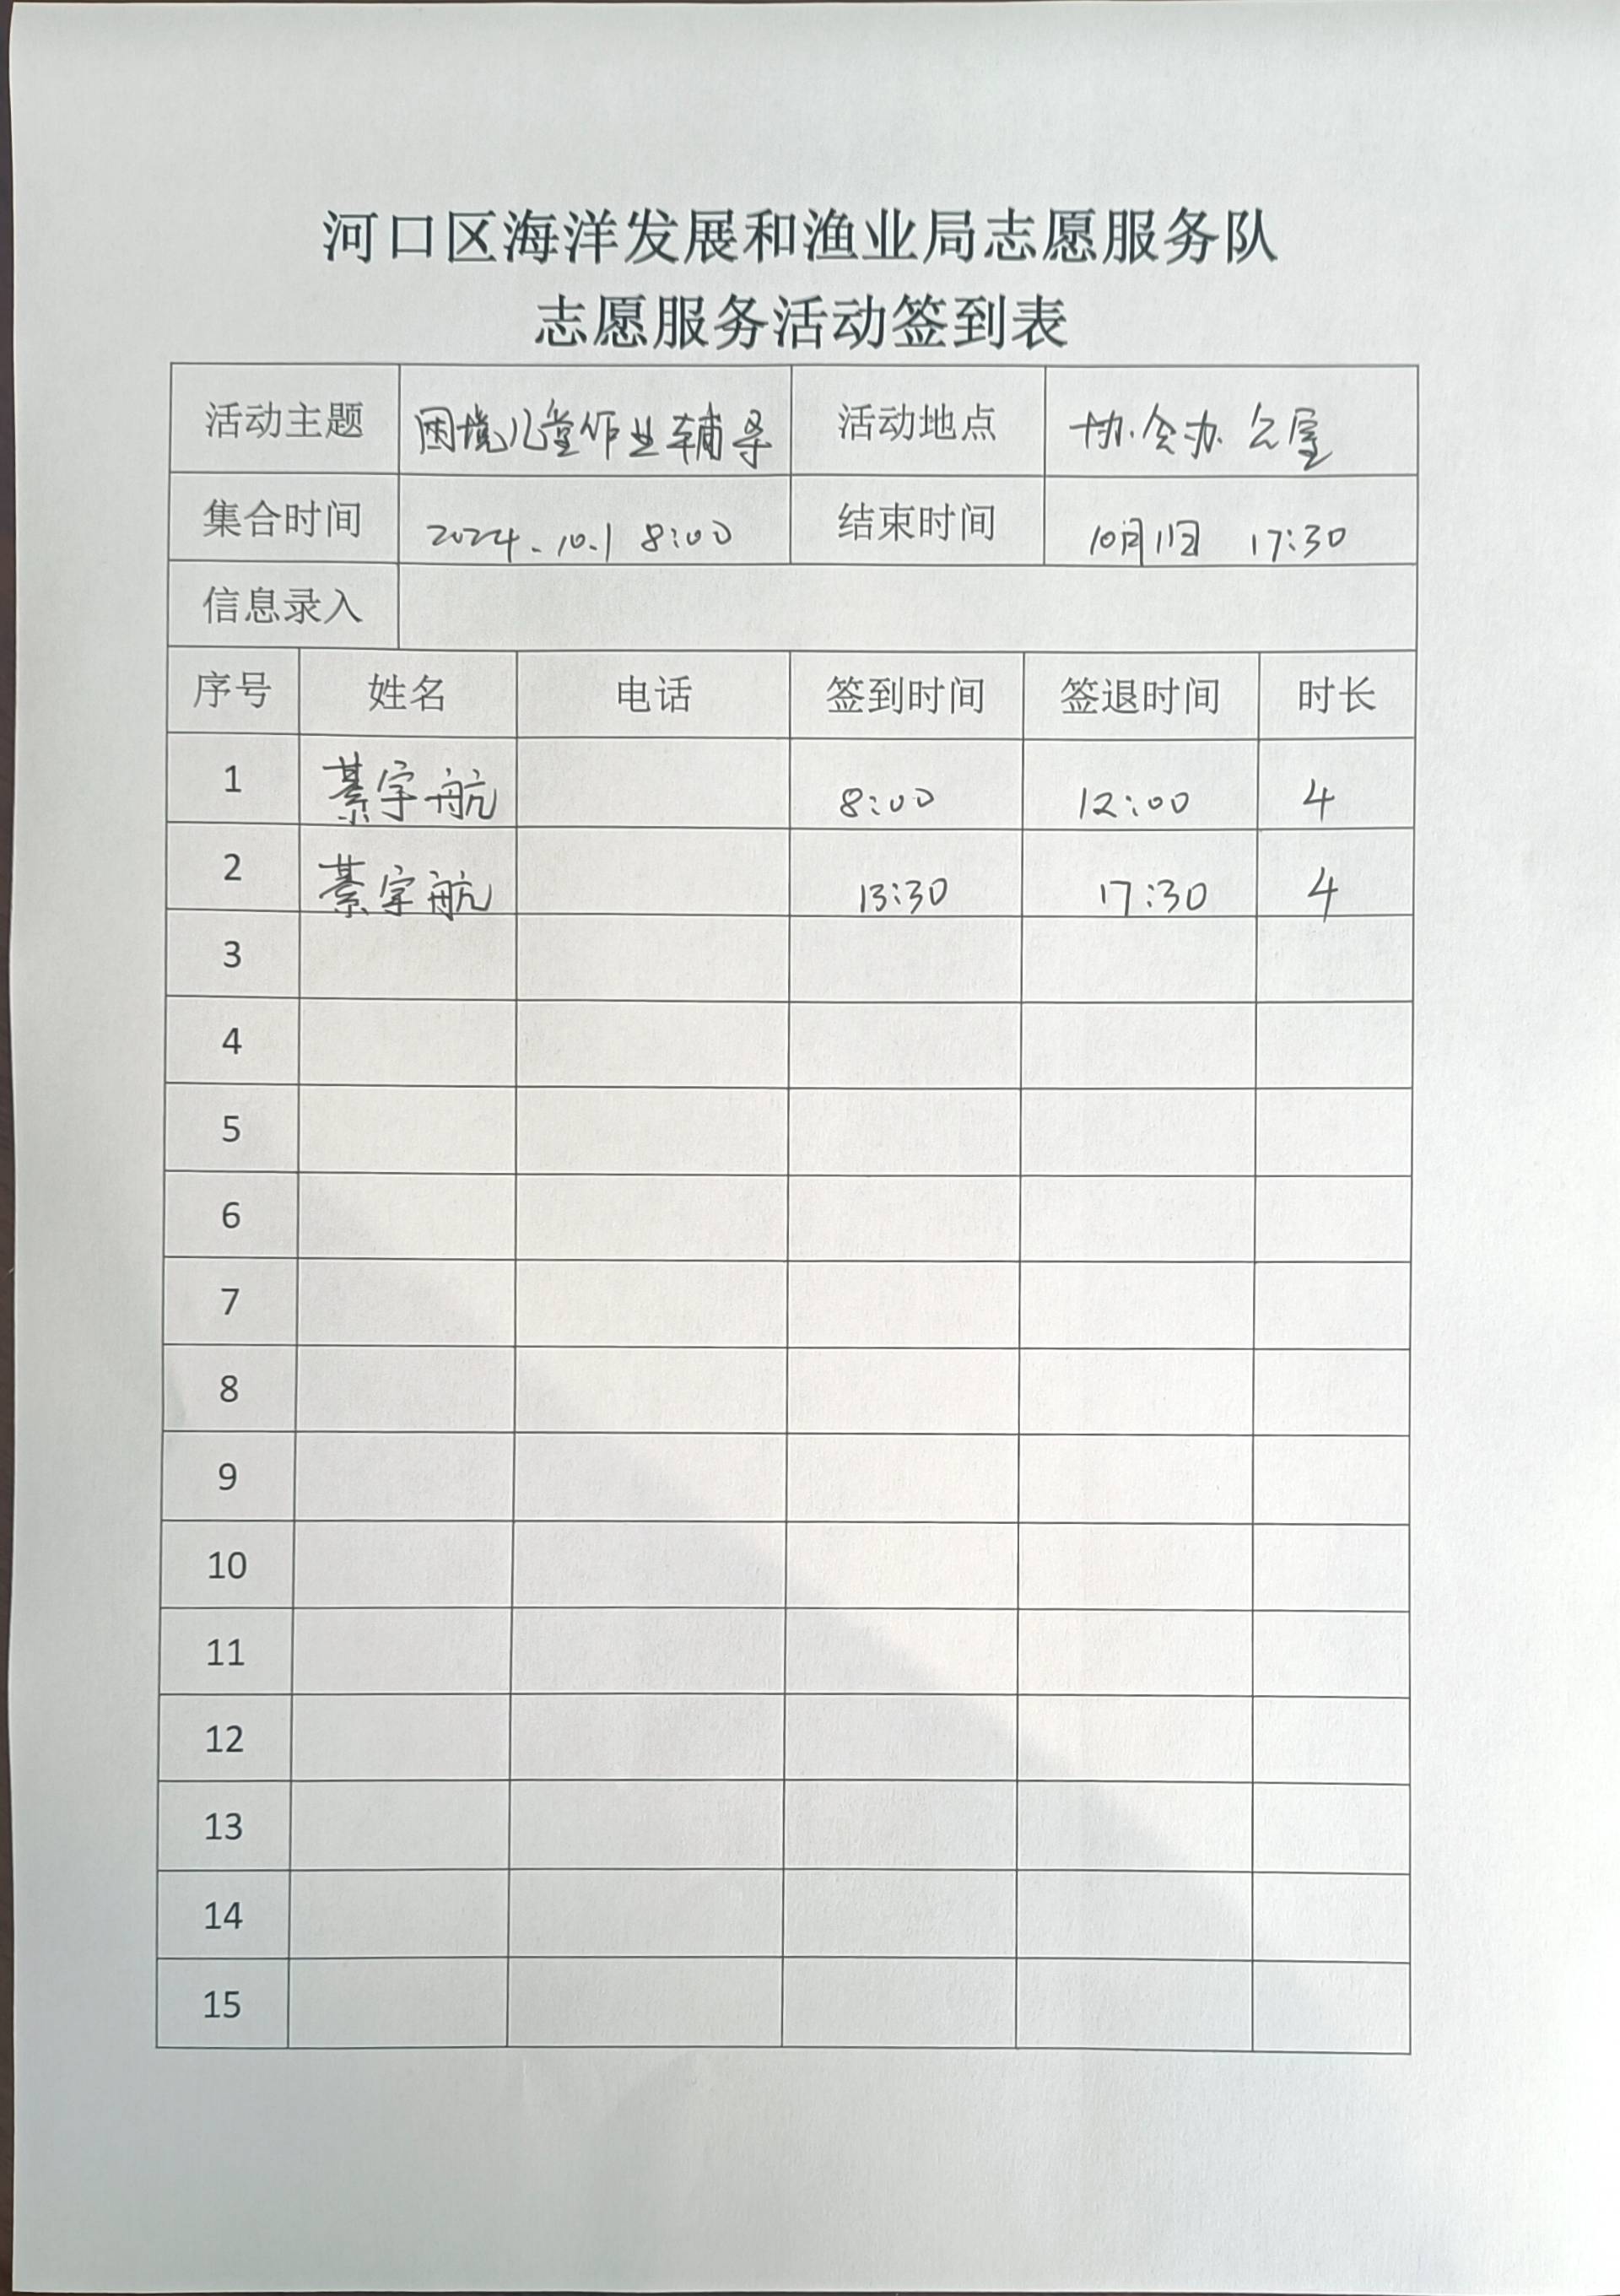 河口区海洋发展和渔业局志愿服务队
志愿服务活动签到表
活动主题 困境儿童作业辅导 活动地点 协会办公室
集合时间 2024.10.1 8:00 结束时间 10月1日 17:30
信息录入
序号 姓名 电话 签到时间 签退时间 时长
1 綦宇航 8:00 12:00 4
2 綦宇航 13:30 17:30 4
3
4
5
6
7
8
9
10
11
12
13
14
15